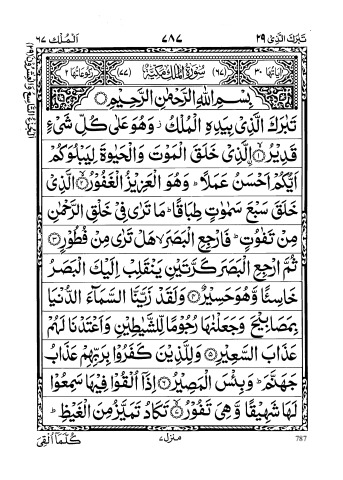 تَبٰرَكَ الَّذِیْ ۲۹
۷۸۷
اَلْمُلْك ۶۷
اٰیَاتُهَا ۳۰
(۶۷) سُوْرَةُ الْمُلْكِ مَكِّیَّةٌ (۷۷)
رُكُوْعَاتُهَا ۲
بِسْمِ اللّٰهِ الرَّحْمٰنِ الرَّحِیْمِ
تَبٰرَكَ الَّذِیْ بِیَدِهِ الْمُلْكُ ز وَهُوَ عَلٰی كُلِّ شَیْءٍ
قَدِیْرُ ۨ ۝۱ الَّذِیْ خَلَقَ الْمَوْتَ وَالْحَیٰوةَ لِیَبْلُوَكُمْ
اَیُّكُمْ اَحْسَنُ عَمَلًا ؕ وَهُوَ الْعَزِیْزُ الْغَفُوْرُ ۝۲ الَّذِیْ
خَلَقَ سَبْعَ سَمٰوٰتٍ طِبَاقًا ؕ مَا تَرٰی فِیْ خَلْقِ الرَّحْمٰنِ
مِنْ تَفٰوُتٍ ؕ فَارْجِعِ الْبَصَرَ ۙ هَلْ تَرٰی مِنْ فُطُوْرٍ ۝۳
ثُمَّ ارْجِعِ الْبَصَرَ كَرَّتَیْنِ یَنْقَلِبْ اِلَیْكَ الْبَصَرُ
خَاسِئًا وَّهُوَ حَسِیْرٌ ۝۴ وَلَقَدْ زَیَّنَّا السَّمَآءَ الدُّنْیَا
بِمَصَابِیْحَ وَجَعَلْنٰهَا رُجُوْمًا لِّلشَّیٰطِیْنِ وَاَعْتَدْنَا لَهُمْ
عَذَابَ السَّعِیْرِ ۝۵ وَلِلَّذِیْنَ كَفَرُوْا بِرَبِّهِمْ عَذَابُ
جَهَنَّمَ ؕ وَبِئْسَ الْمَصِیْرُ ۝۶ اِذَاۤ اُلْقُوْا فِیْهَا سَمِعُوْا
لَهَا شَهِیْقًا وَّهِیَ تَفُوْرُ ۝۷ تَكَادُ تَمَیَّزُ مِنَ الْغَیْظِ ؕ
787
منزل ۷
كُلَّمَاۤ اُلْقِیَ